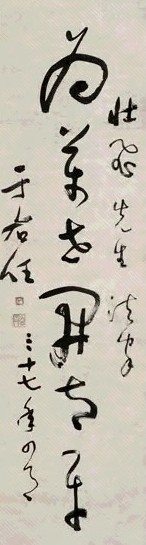 壯飛先生法家
為萬世開太平
于右任
三十七年四月